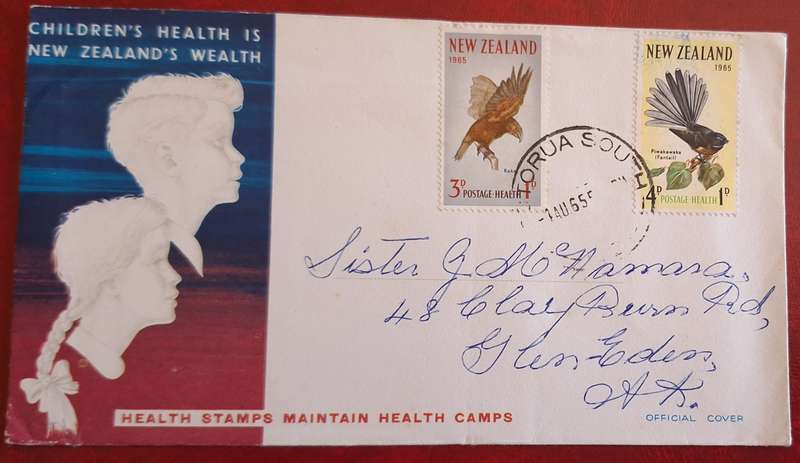 CHILDREN'S HEALTH IS
NEW ZEALAND'S WEALTH
NEW ZEALAND
1965
Kaka
3D POSTAGE-HEALTH 1D
NEW ZEALAND
1965
Piwakawaka
(Fantail)
4D POSTAGE-HEALTH 1D
ORUA SOUTH
AU 65
Sister G McNamara,
48 Clay Burn Rd,
Glen-Eden,
AK.
HEALTH STAMPS MAINTAIN HEALTH CAMPS
OFFICIAL COVER